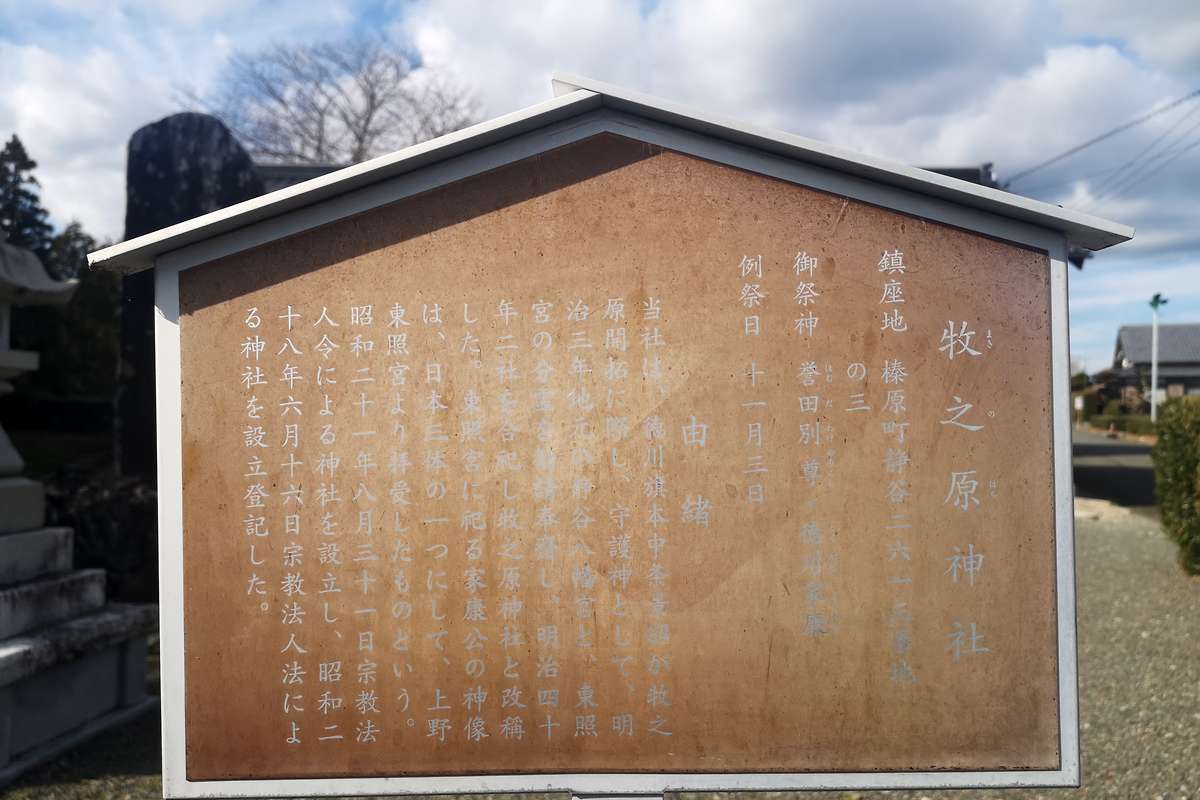 牧之原神社
まき の はら
鎮座地 榛原町静谷二六一三番地
の三
御祭神 誉田別尊・徳川家康
例祭日 十一月三日
由緒
当社は、徳川旗本中条景昭が牧之
原開拓に際し、守護神として、明
治三年地元の静谷八幡宮と、東照
宮の分霊を勧請奉齋し、明治四十
年二社を合祀し牧之原神社と改稱
した。東照宮に祀る家康公の神像
は、日本三体の一つにして、上野
東照宮より拝受したものという。
昭和二十一年八月三十一日宗教法
人令による神社を設立し、昭和二
十八年六月十六日宗教法人法によ
る神社を設立登記した。